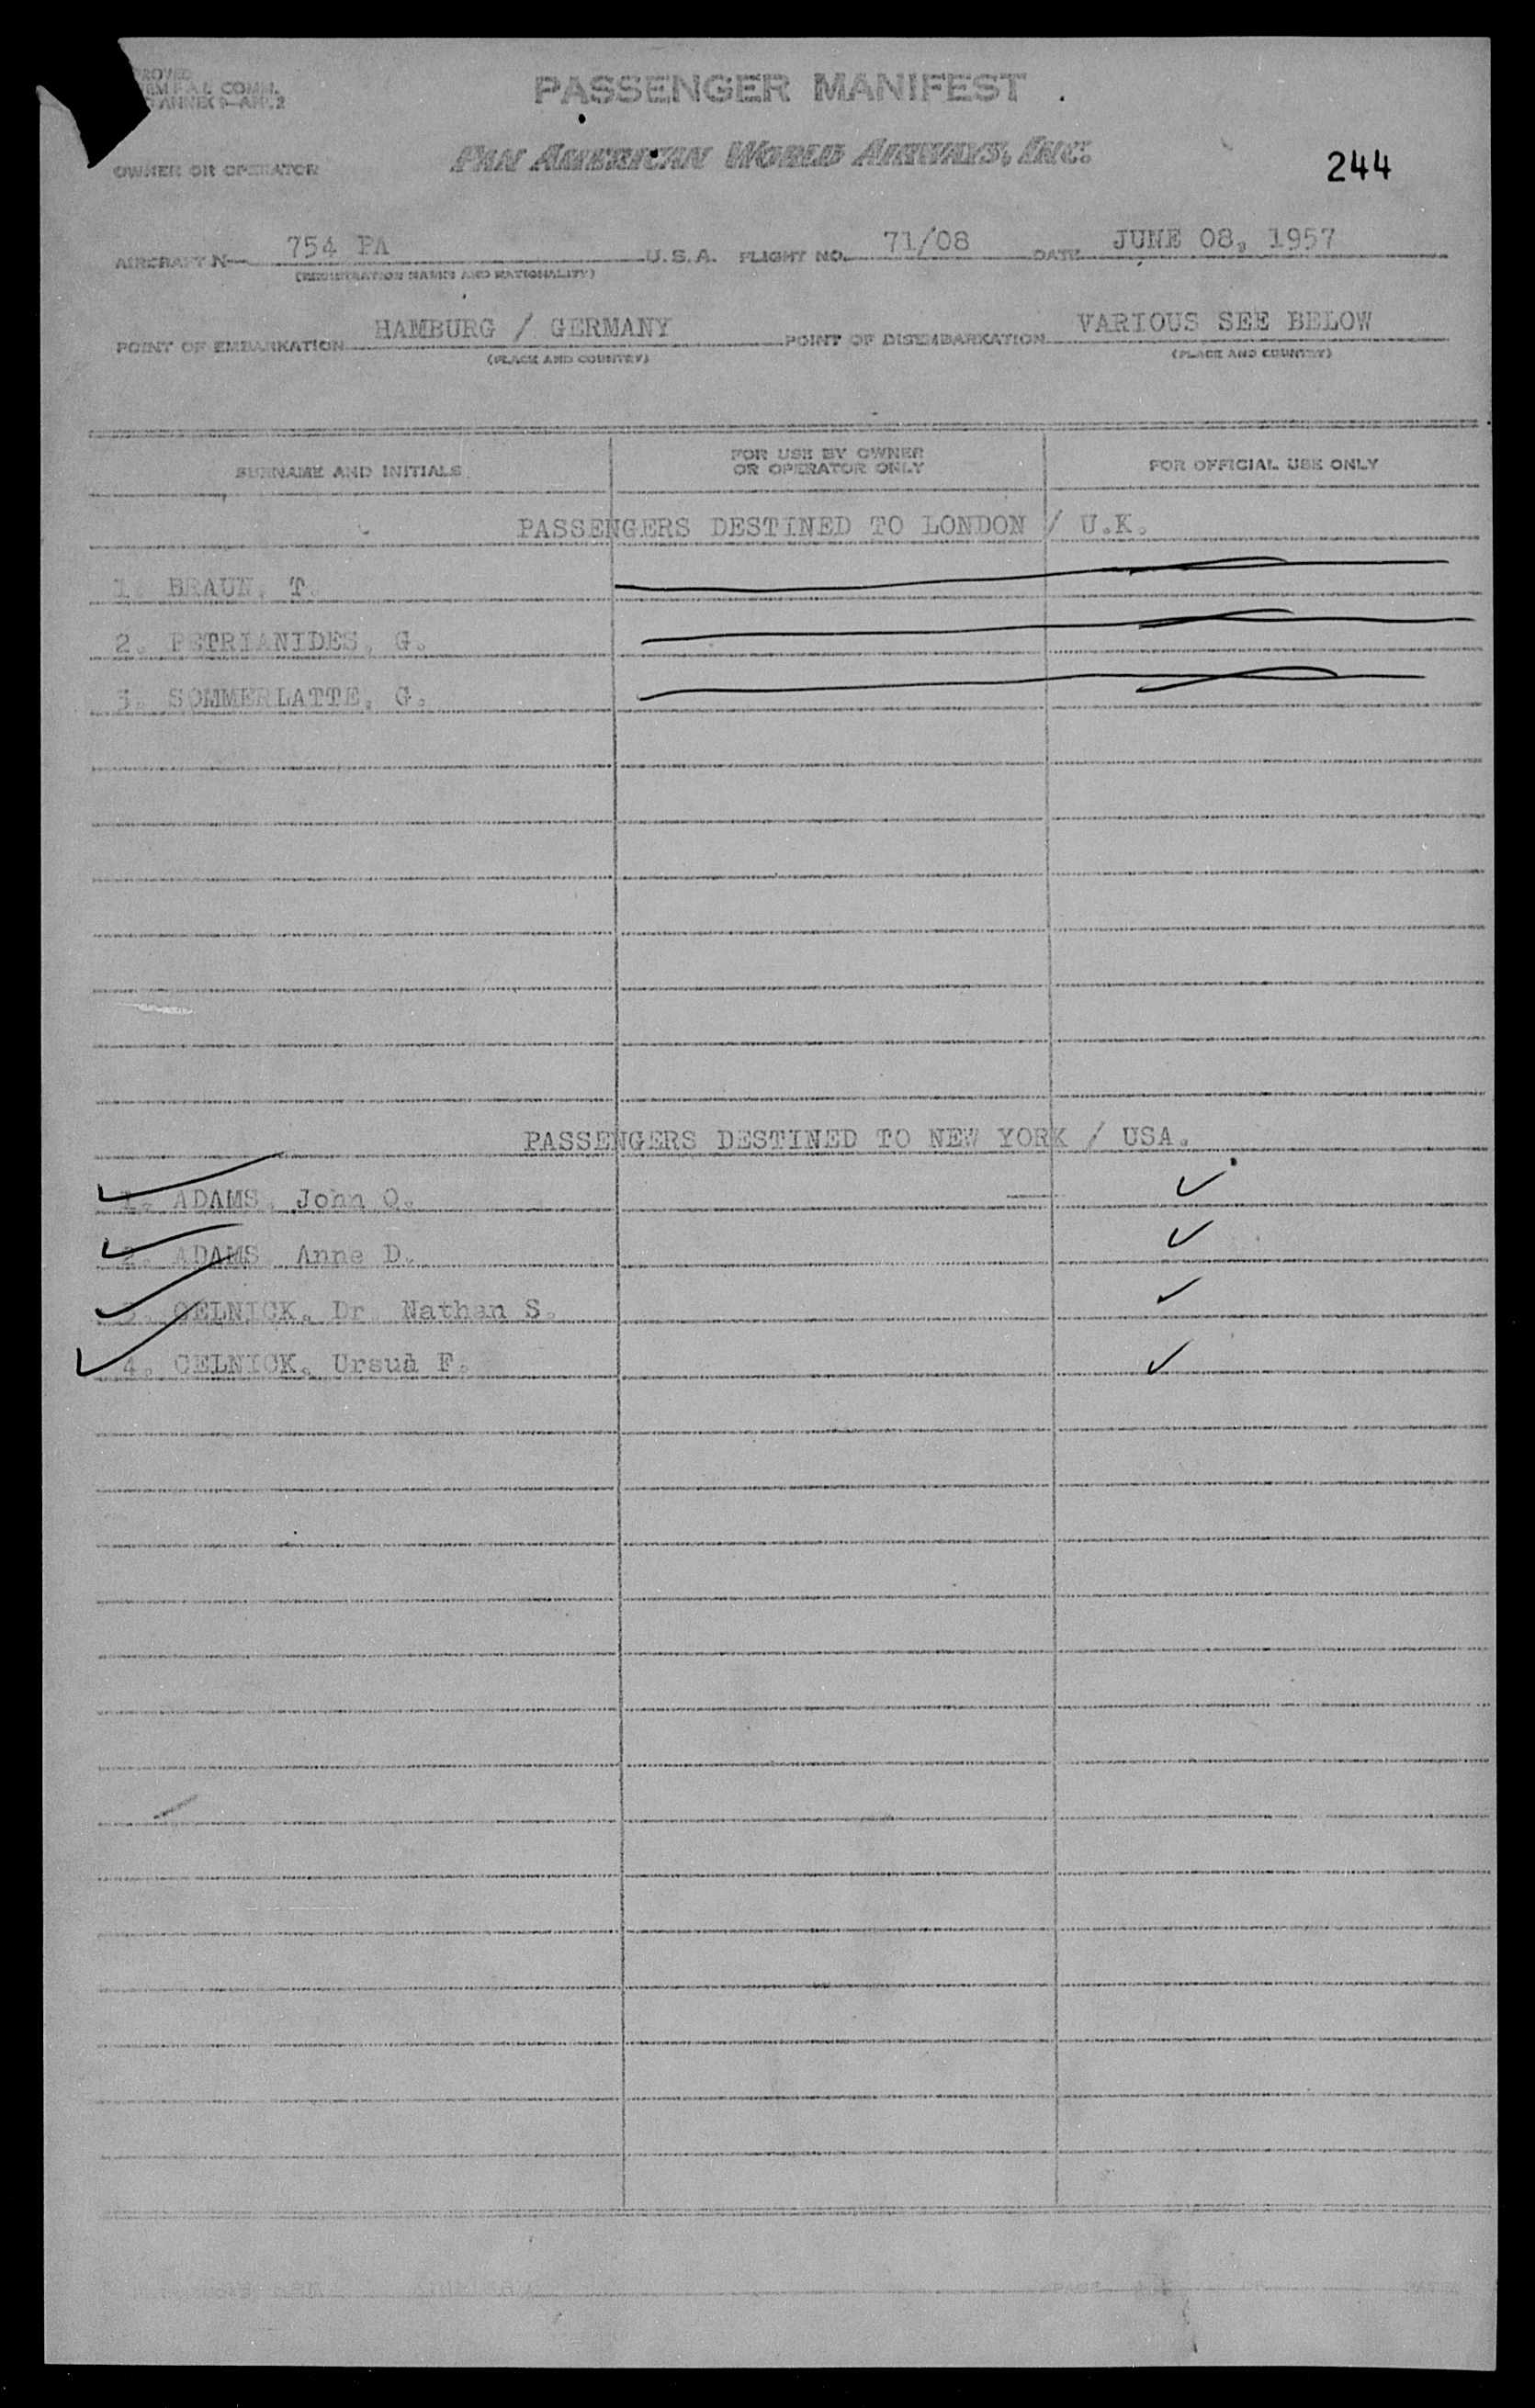 PASSENGER MANIFEST
PAN AMERICAN WORLD AIRWAYS, INC.
OWNER OR OPERATOR
244
AIRCRAFT N— 754 PA U.S.A. FLIGHT NO. 71/08 DATE JUNE 08, 1957
(REGISTRATION MARKS AND NATIONALITY)
POINT OF EMBARKATION HAMBURG / GERMANY POINT OF DISEMBARKATION VARIOUS SEE BELOW
(PLACE AND COUNTRY) (PLACE AND COUNTRY)
SURNAME AND INITIALS FOR USE BY OWNER OR OPERATOR ONLY FOR OFFICIAL USE ONLY
PASSENGERS DESTINED TO LONDON / U.K.
1. BRAUN, T.
2. PETRIANIDES, G.
3. SOMMERLATTE, G.
PASSENGERS DESTINED TO NEW YORK / USA.
1. ADAMS, John Q.
2. ADAMS, Anne D.
3. CELNICK, Dr. Nathan S.
4. CELNICK, Ursuà F.
PAGE